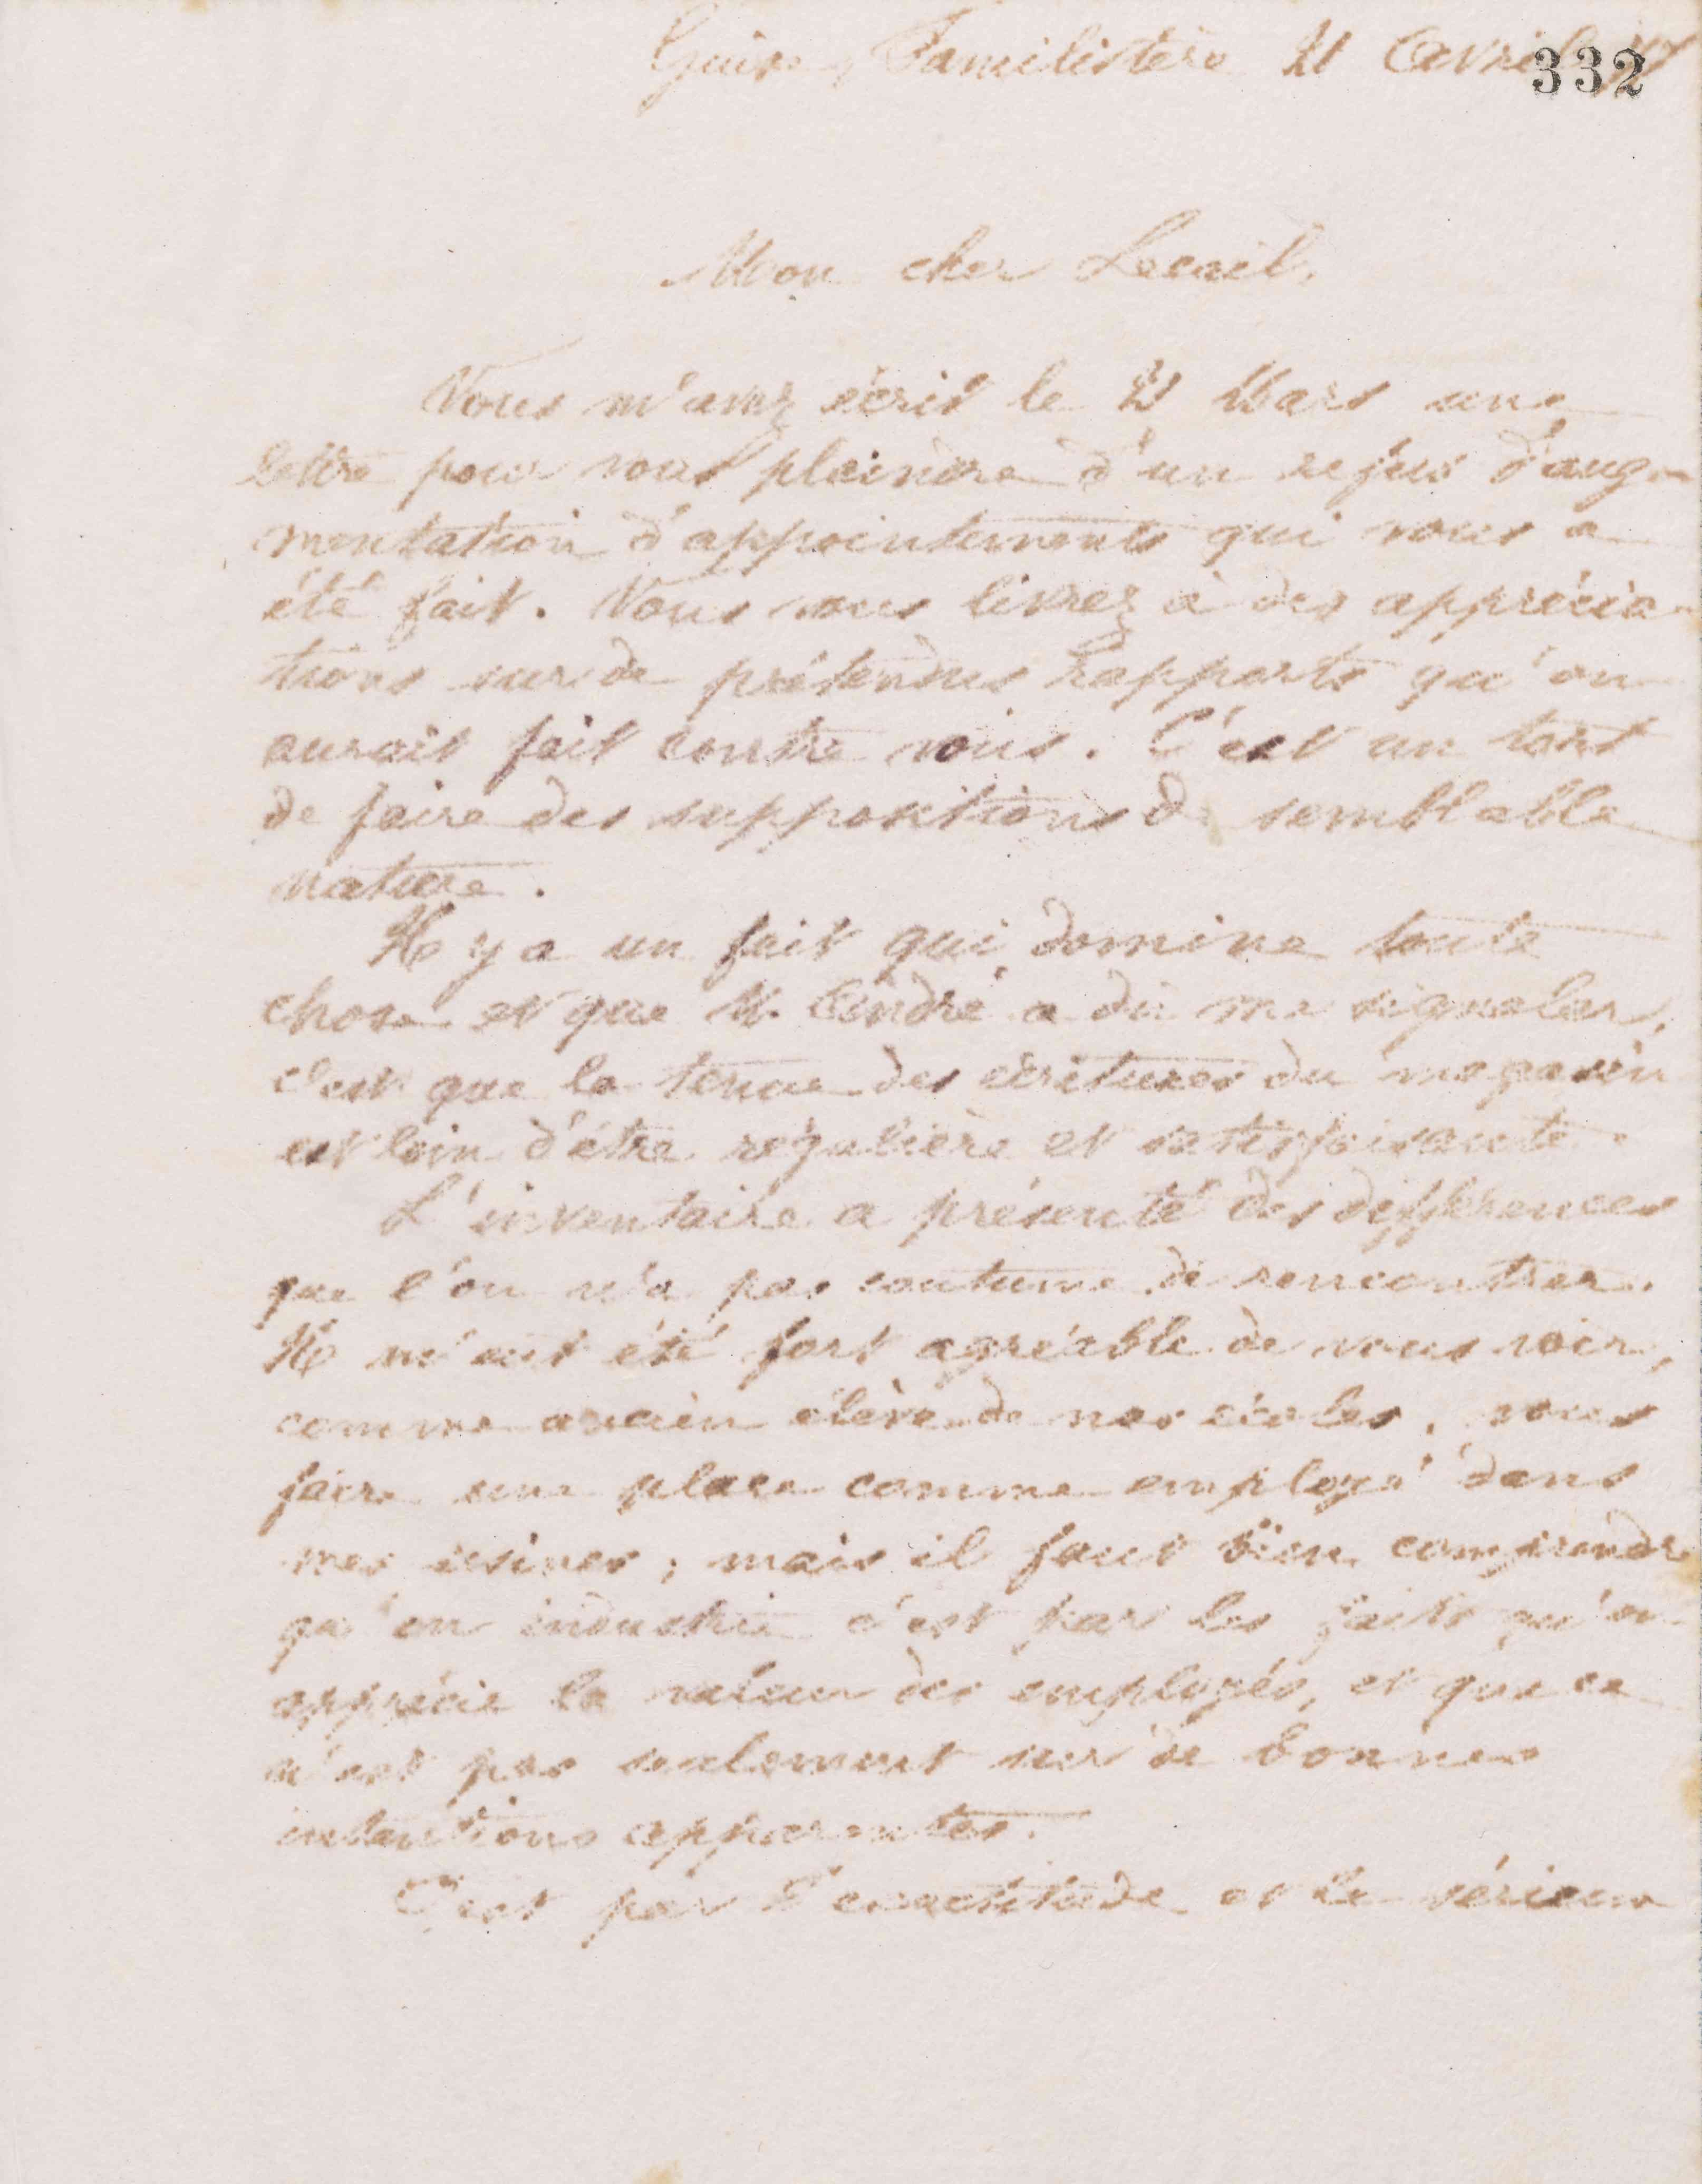 332
Guise, Familistère 21 Avril
Mon cher Lecail,
Vous m'avez écrit le 21 Mars une
lettre pour vous plaindre d'un refus d'aug-
mentation d'appointements qui vous a
été fait. Vous vous livrez à des apprécia-
tions sur de prétendus rapports qu'on
aurait fait contre vous. C'est un tort
de faire des suppositions de semblable
nature.
Il y a un fait qui domine toute
chose et que M. André a dû me signaler,
c'est que la tenue des écritures du magasin
est loin d'être régulière et satisfaisante.
L'inventaire a présenté des différences
que l'on n'a pas coutume de rencontrer.
Il m'eut été fort agréable de vous voir,
comme ancien élève de nos écoles, vous
faire une place comme employé dans
mes usines ; mais il faut bien comprendre
qu'en industrie c'est par les faits qu'on
apprécie la valeur des employés, et que ce
n'est pas seulement sur de bonnes
intentions apparentes.
C'est par l'exactitude et le sérieux